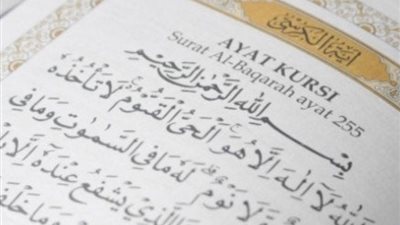 آية الكرسي
AYAT KURSI
Surat Al-Baqarah ayat 255
بِسْمِ اللهِ الرَّحْمٰنِ الرَّحِيْمِ
اللهُ لَآ اِلٰهَ اِلَّا هُوَ الْحَيُّ الْقَيُّوْمُ لَا تَأْخُذُهٗ
سِنَةٌ وَّلَا نَوْمٌ لَهٗ مَا فِى السَّمٰوٰتِ وَمَا فِى
الَّذِيْ يَشْفَعُ عِنْدَهٗٓ اِلَّا
وَمَا خَلْفَ